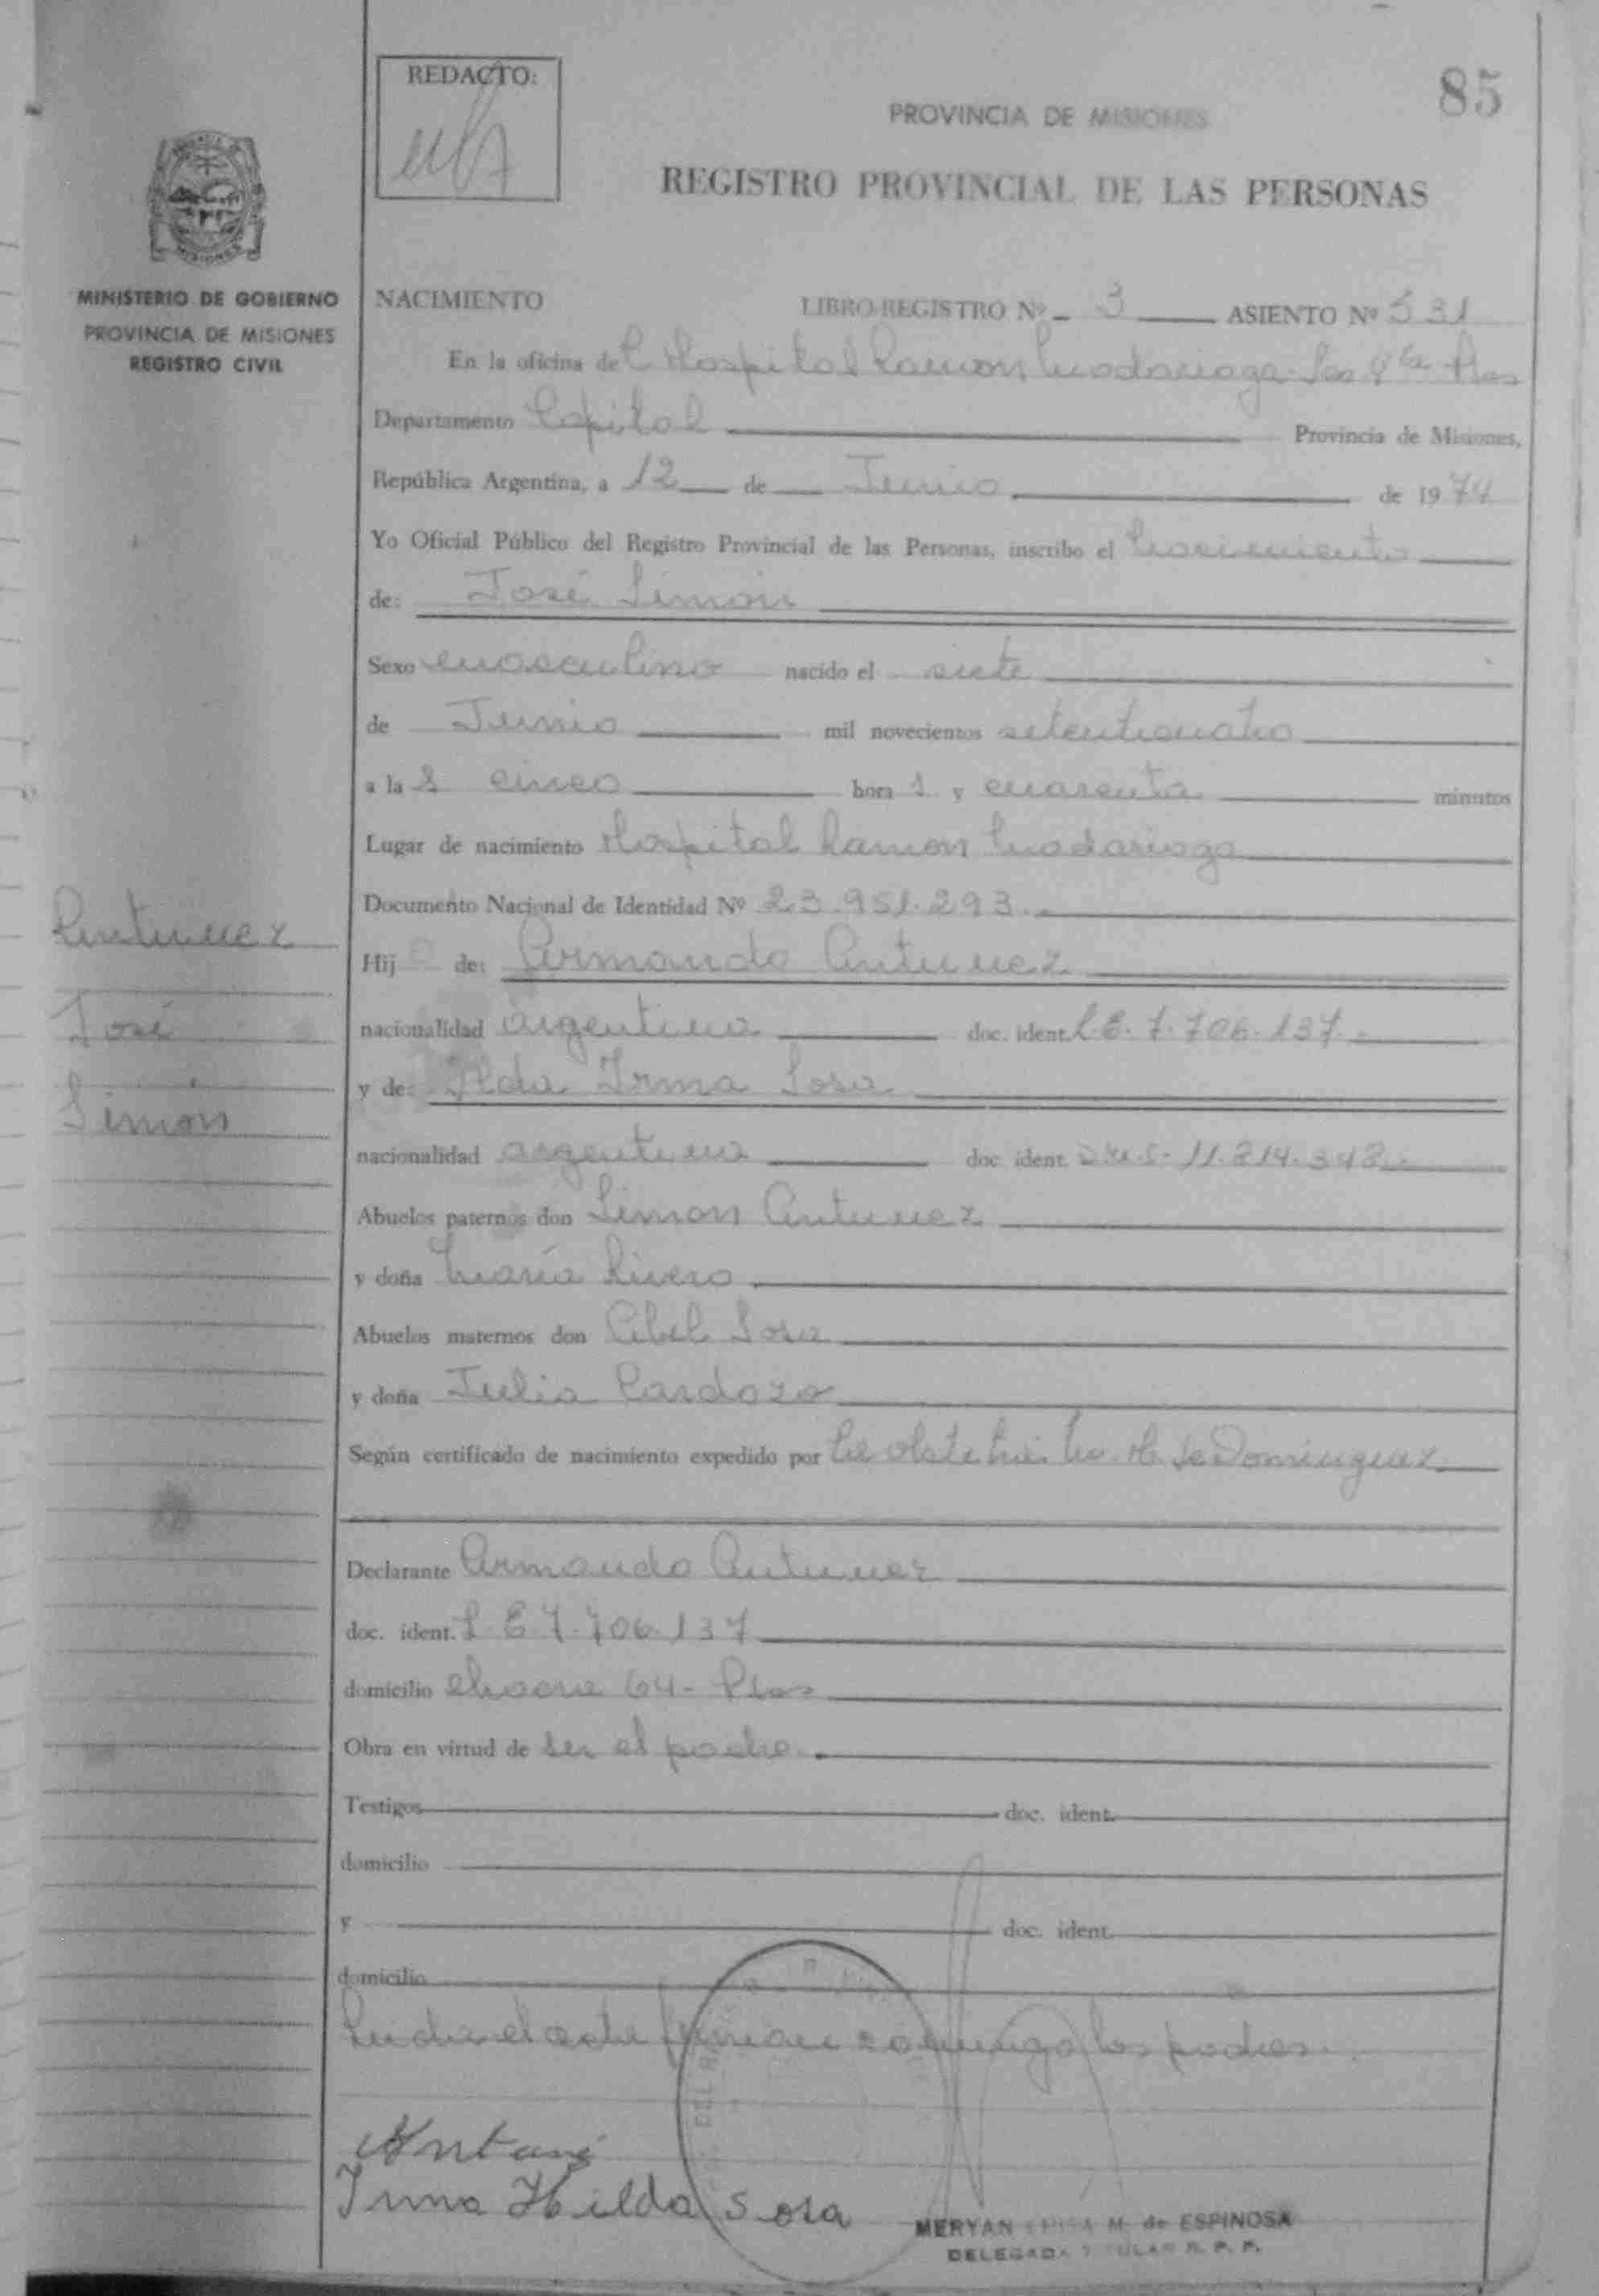 85
REDACTO:
PROVINCIA DE MISIONES
REGISTRO PROVINCIAL DE LAS PERSONAS
MISIONES
MINISTERIO DE GOBIERNO
PROVINCIA DE MISIONES
REGISTRO CIVIL
NACIMIENTO LIBRO-REGISTRO Nº 3 ASIENTO Nº 531
En la oficina de Hospital Ramon Madariaga
Departamento Capital Provincia de Misiones,
República Argentina, a 12 de Junio de 1974
Yo Oficial Público del Registro Provincial de las Personas, inscribo el Nacimiento
de: José Simón
Sexo masculino nacido el siete
de Junio mil novecientos setenticuatro
a las cinco horas y cuarenta minutos
Lugar de nacimiento Hospital Ramon Madariaga
Documento Nacional de Identidad Nº 23.951.293
Antunez
Hijo de: Armando Antunez
José
nacionalidad argentina doc. ident. L.E. 7.706.137.
y de: Ilda Irma Sosa
Simón
nacionalidad argentina doc ident. 11.214.348.
Abuelos paternos don Simon Antunez
y doña María Rivero
Abuelos maternos don Abel Sosa
y doña Julia Cardozo
Según certificado de nacimiento expedido por La obstetri. M. H. de Dominguez
Declarante Armando Antunez
doc. ident. L.E 7.706.137
domicilio chacra 64- Pdas
Obra en virtud de ser el padre.
Testigos doc. ident.
domicilio
y doc. ident.
domicilio
Leida el acta firman conmigo los padres.
Antune
Irma Hilda Sosa
MERYAN LUISA M. de ESPINOSA
DELEGADA TITULAR R. P. P.